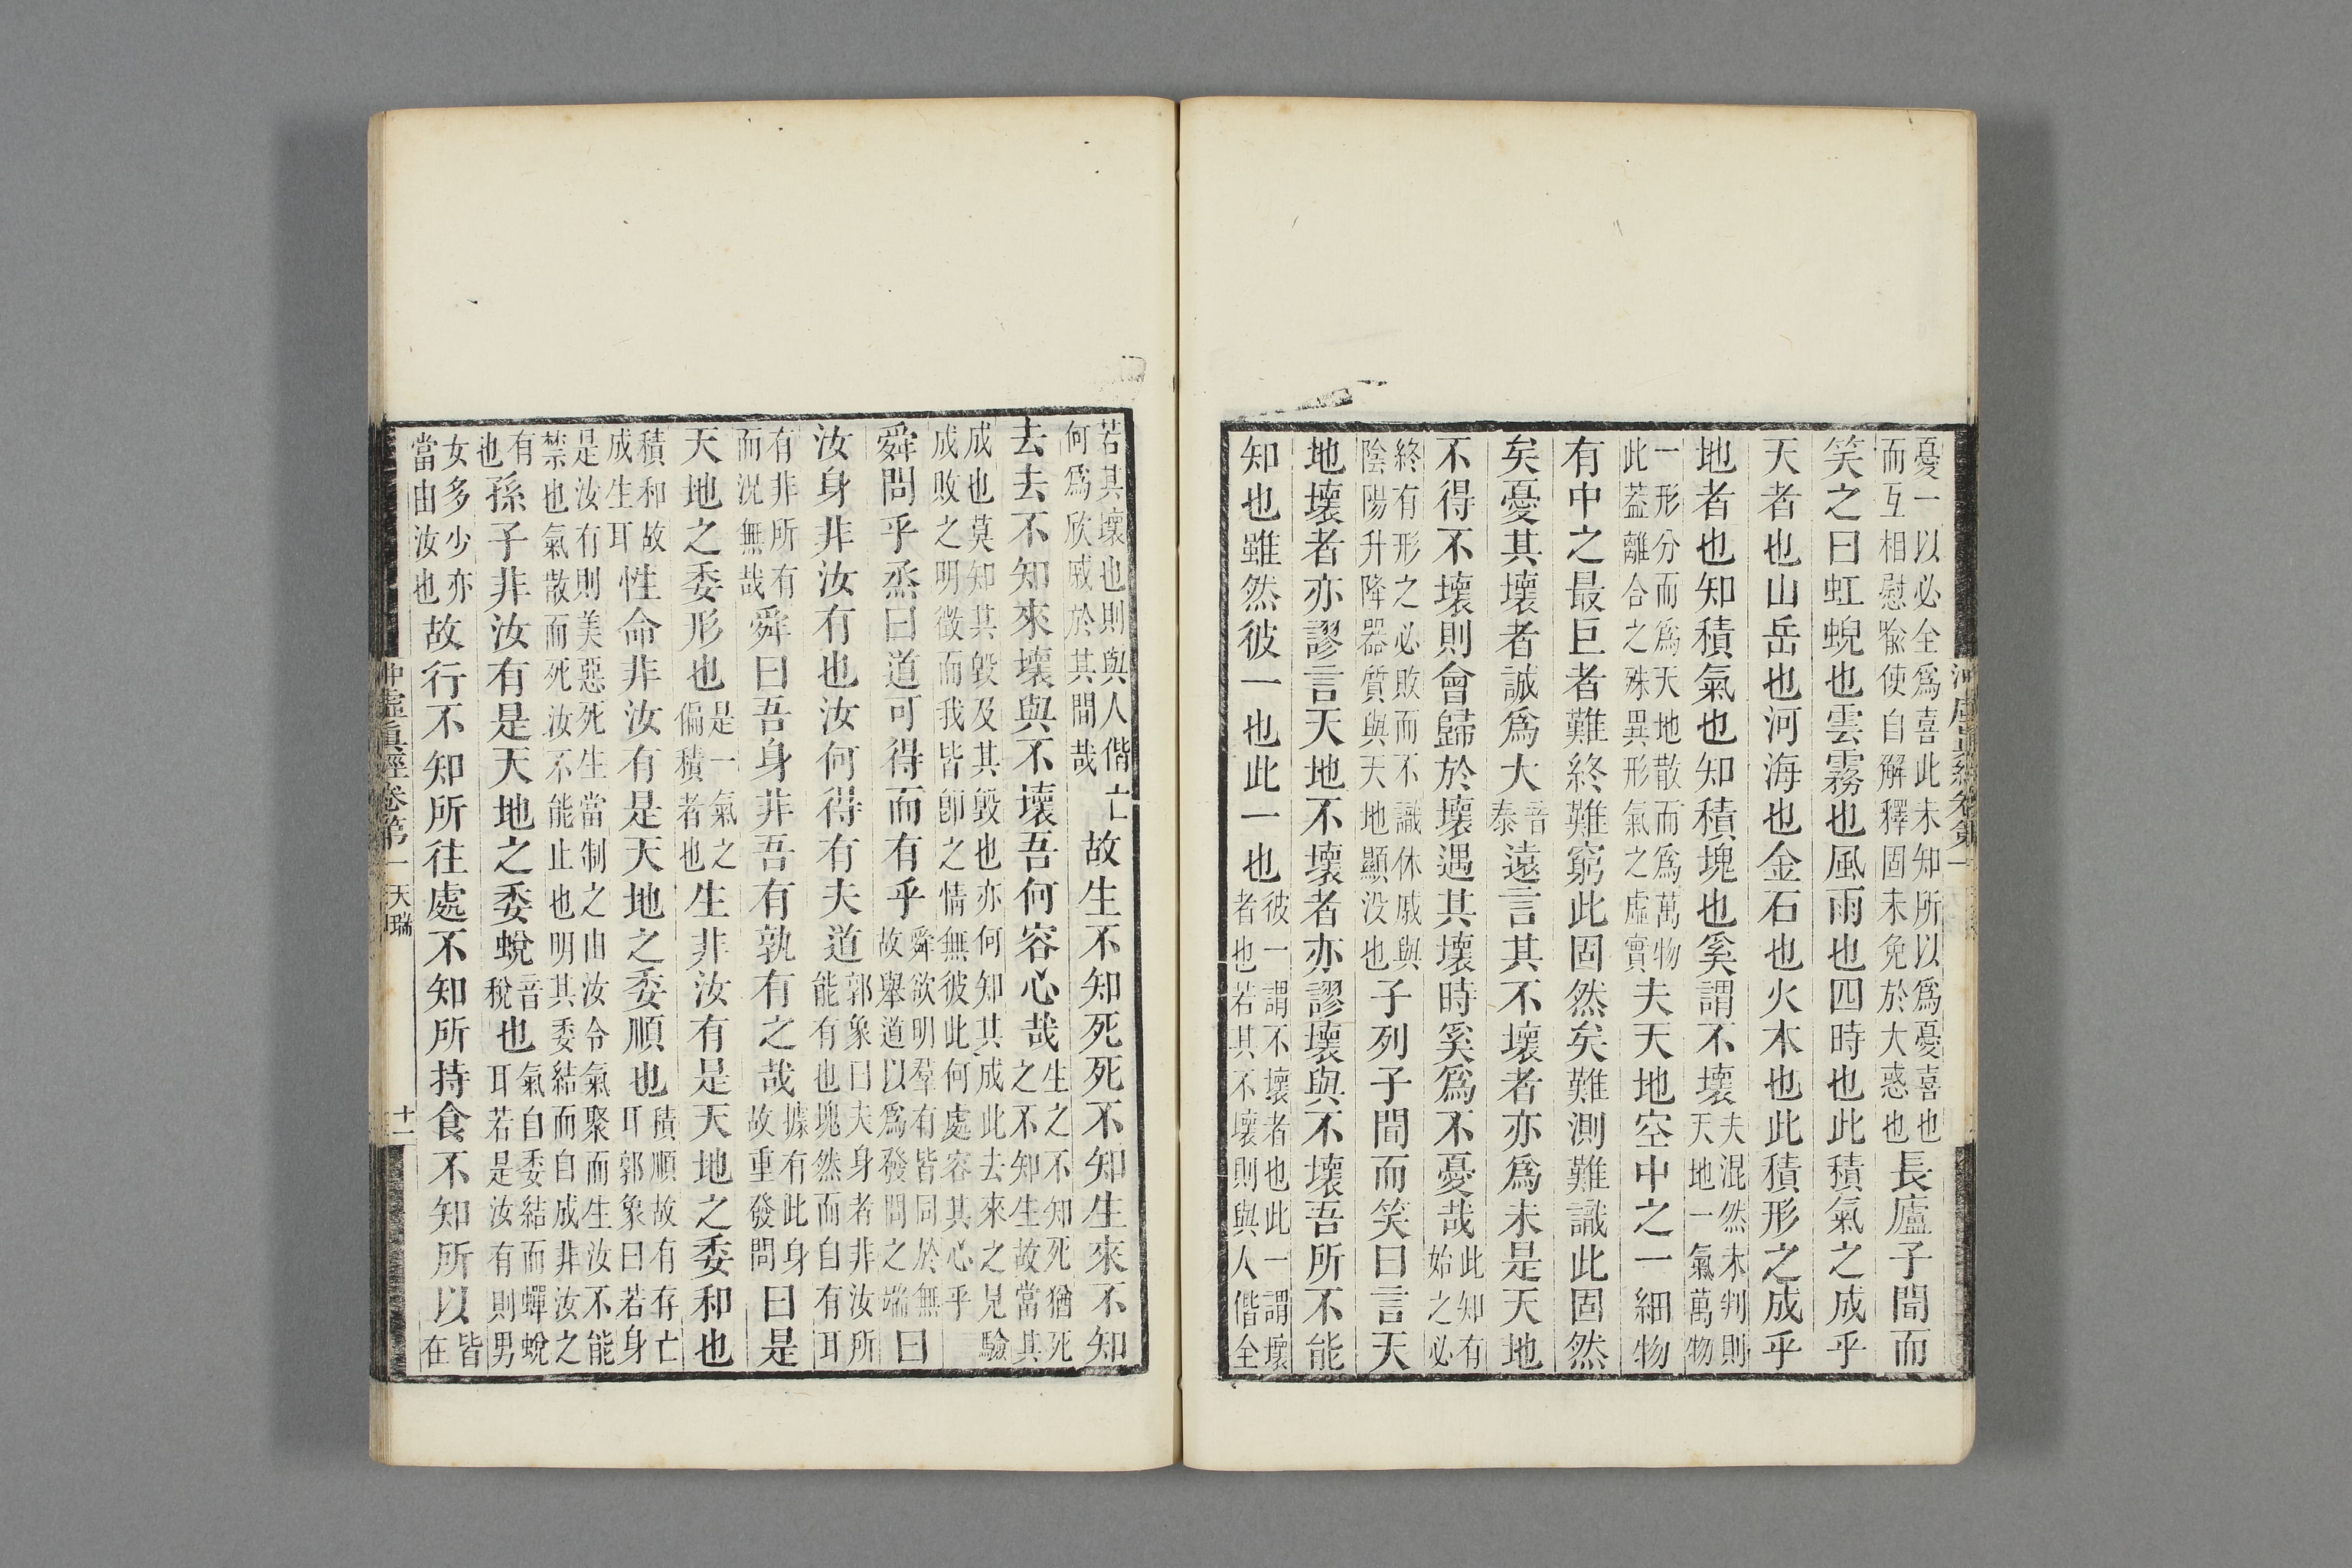 憂一以必全爲喜此未知所以爲憂喜也而互相慰喻使自解釋固未免於大惑也長廬子聞而
笑之曰虹蜺也雲霧也風雨也四時也此積氣之成乎
天者也山岳也河海也金石也火木也此積形之成乎
地者也知積氣也知積塊也奚謂不壞夫混然未判則天地一氣萬物
一形分而爲天地散而爲萬物此蓋離合之殊異形氣之虛實夫天地空中之一細物
有中之最巨者難終難窮此固然矣難測難識此固然
矣憂其壞者誠爲大音泰遠言其不壞者亦爲未是天地
不得不壞則會歸於壞遇其壞時奚爲不憂哉此知有始之必
終有形之必敗而不識休戚與陰陽升降器質與天地顯没也子列子聞而笑曰言天
地壞者亦謬言天地不壞者亦謬壞與不壞吾所不能
知也雖然彼一也此一也彼一謂不壞者也此一謂壞者也若其不壞則與人偕全
若其壞也則與人偕亡何爲欣戚於其間哉故生不知死死不知生來不知
去去不知來壞與不壞吾何容心哉生之不知死猶死之不知生故當其
成也莫知其毀及其毀也亦何知其成此去來之見驗成敗之明徵而我皆卽之情無彼此何處容其心乎
舜問乎烝曰道可得而有乎舜欲明羣有皆同於無故舉道以爲發問之端曰
汝身非汝有也汝何得有夫道郭象曰夫身者非汝所能有也塊然而自有耳
有非所有而况無哉舜曰吾身非吾有孰有之哉據有此身故重發問曰是
天地之委形也是一氣之偏積者也生非汝有是天地之委和也
積和故成生耳性命非汝有是天地之委順也積順故有存亡耳郭象曰若身
是汝有則美惡死生當制之由汝今氣聚而生汝不能禁也氣散而死汝不能止也明其委結而自成非汝之
有也孫子非汝有是天地之委蛻音稅也氣自委結而蟬蛻耳若是汝有則男
女多少亦當由汝也故行不知所往處不知所持食不知所以皆在
沖虛眞經卷第一 天瑞 十一